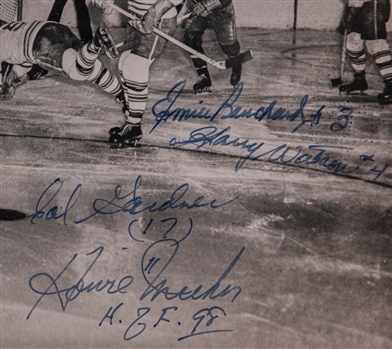 Emile Bouchard # 3
Harry Watson #4
Cal Gardner
(17)
11
Howie Meeker
H.O.F. 98